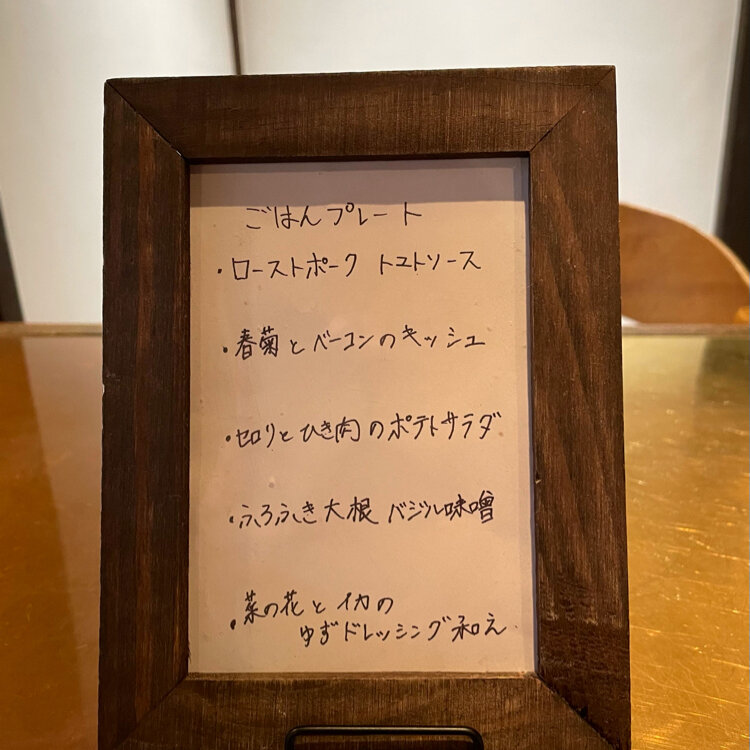 ごはんプレート
・ローストポーク トマトソース
・春菊とベーコンのキッシュ
・セロリとひき肉のポテトサラダ
・ふろふき大根 バジル味噌
・菜の花とイカの
ゆずドレッシング和え